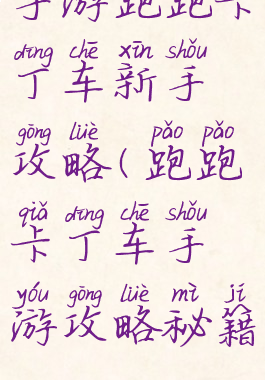 手游跑跑卡
dīng chē xīn shǒu
丁车新手
gōng lüè pǎo pǎo
攻略(跑跑
qiǎ dīng chē shǒu
卡丁车手
yóu gōng lüè mì jí
游攻略秘籍